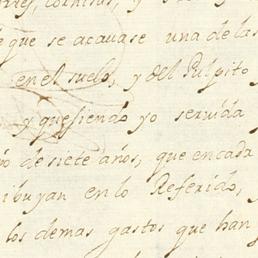 rres, cornisas, y
que se acavase una de las
en el suelo, y del Pulpito
y quesiendo yo servida
de siete años, que encada
ribuyan en lo Referido,
los demas gastos que han